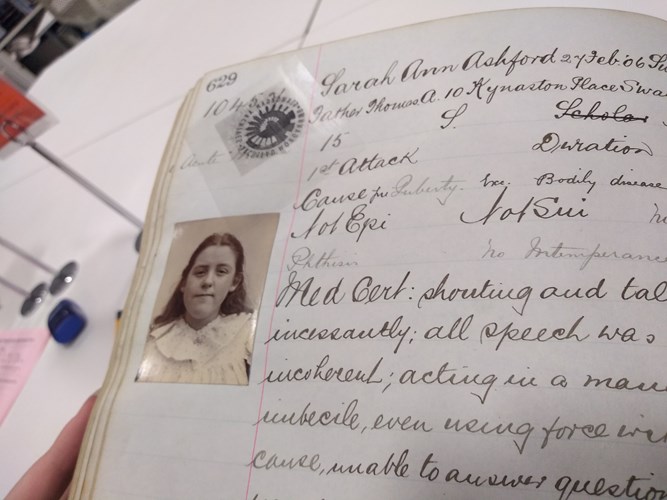 629
Sarah Ann Ashford 27 Feb: 06
Father Thomas A. 10 Kynaston Place Swa
15 S. Scholar
1st Attack Duration
Cause Puberty. Exc. Bodily disease
Not Epi Not Sui
Phthisis no Intemperance
Med Cert: shouting and tal
incessantly; all speech was
incoherent; acting in a man
imbecile, even using force
cause, unable to answer questio